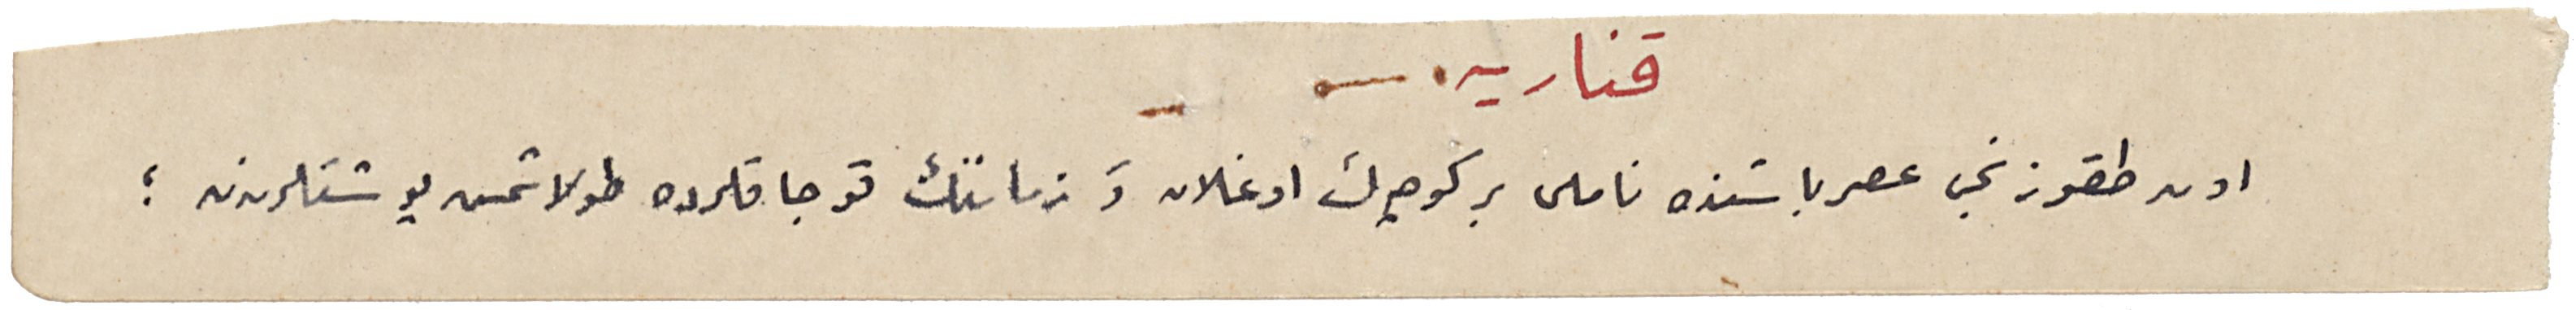 قناریه
اون طقوزنجی عصر باشنده ناملی بر کوچك اوغلان و زماننك قوجاقلرده طولاشمش یوشقلرندن ؛